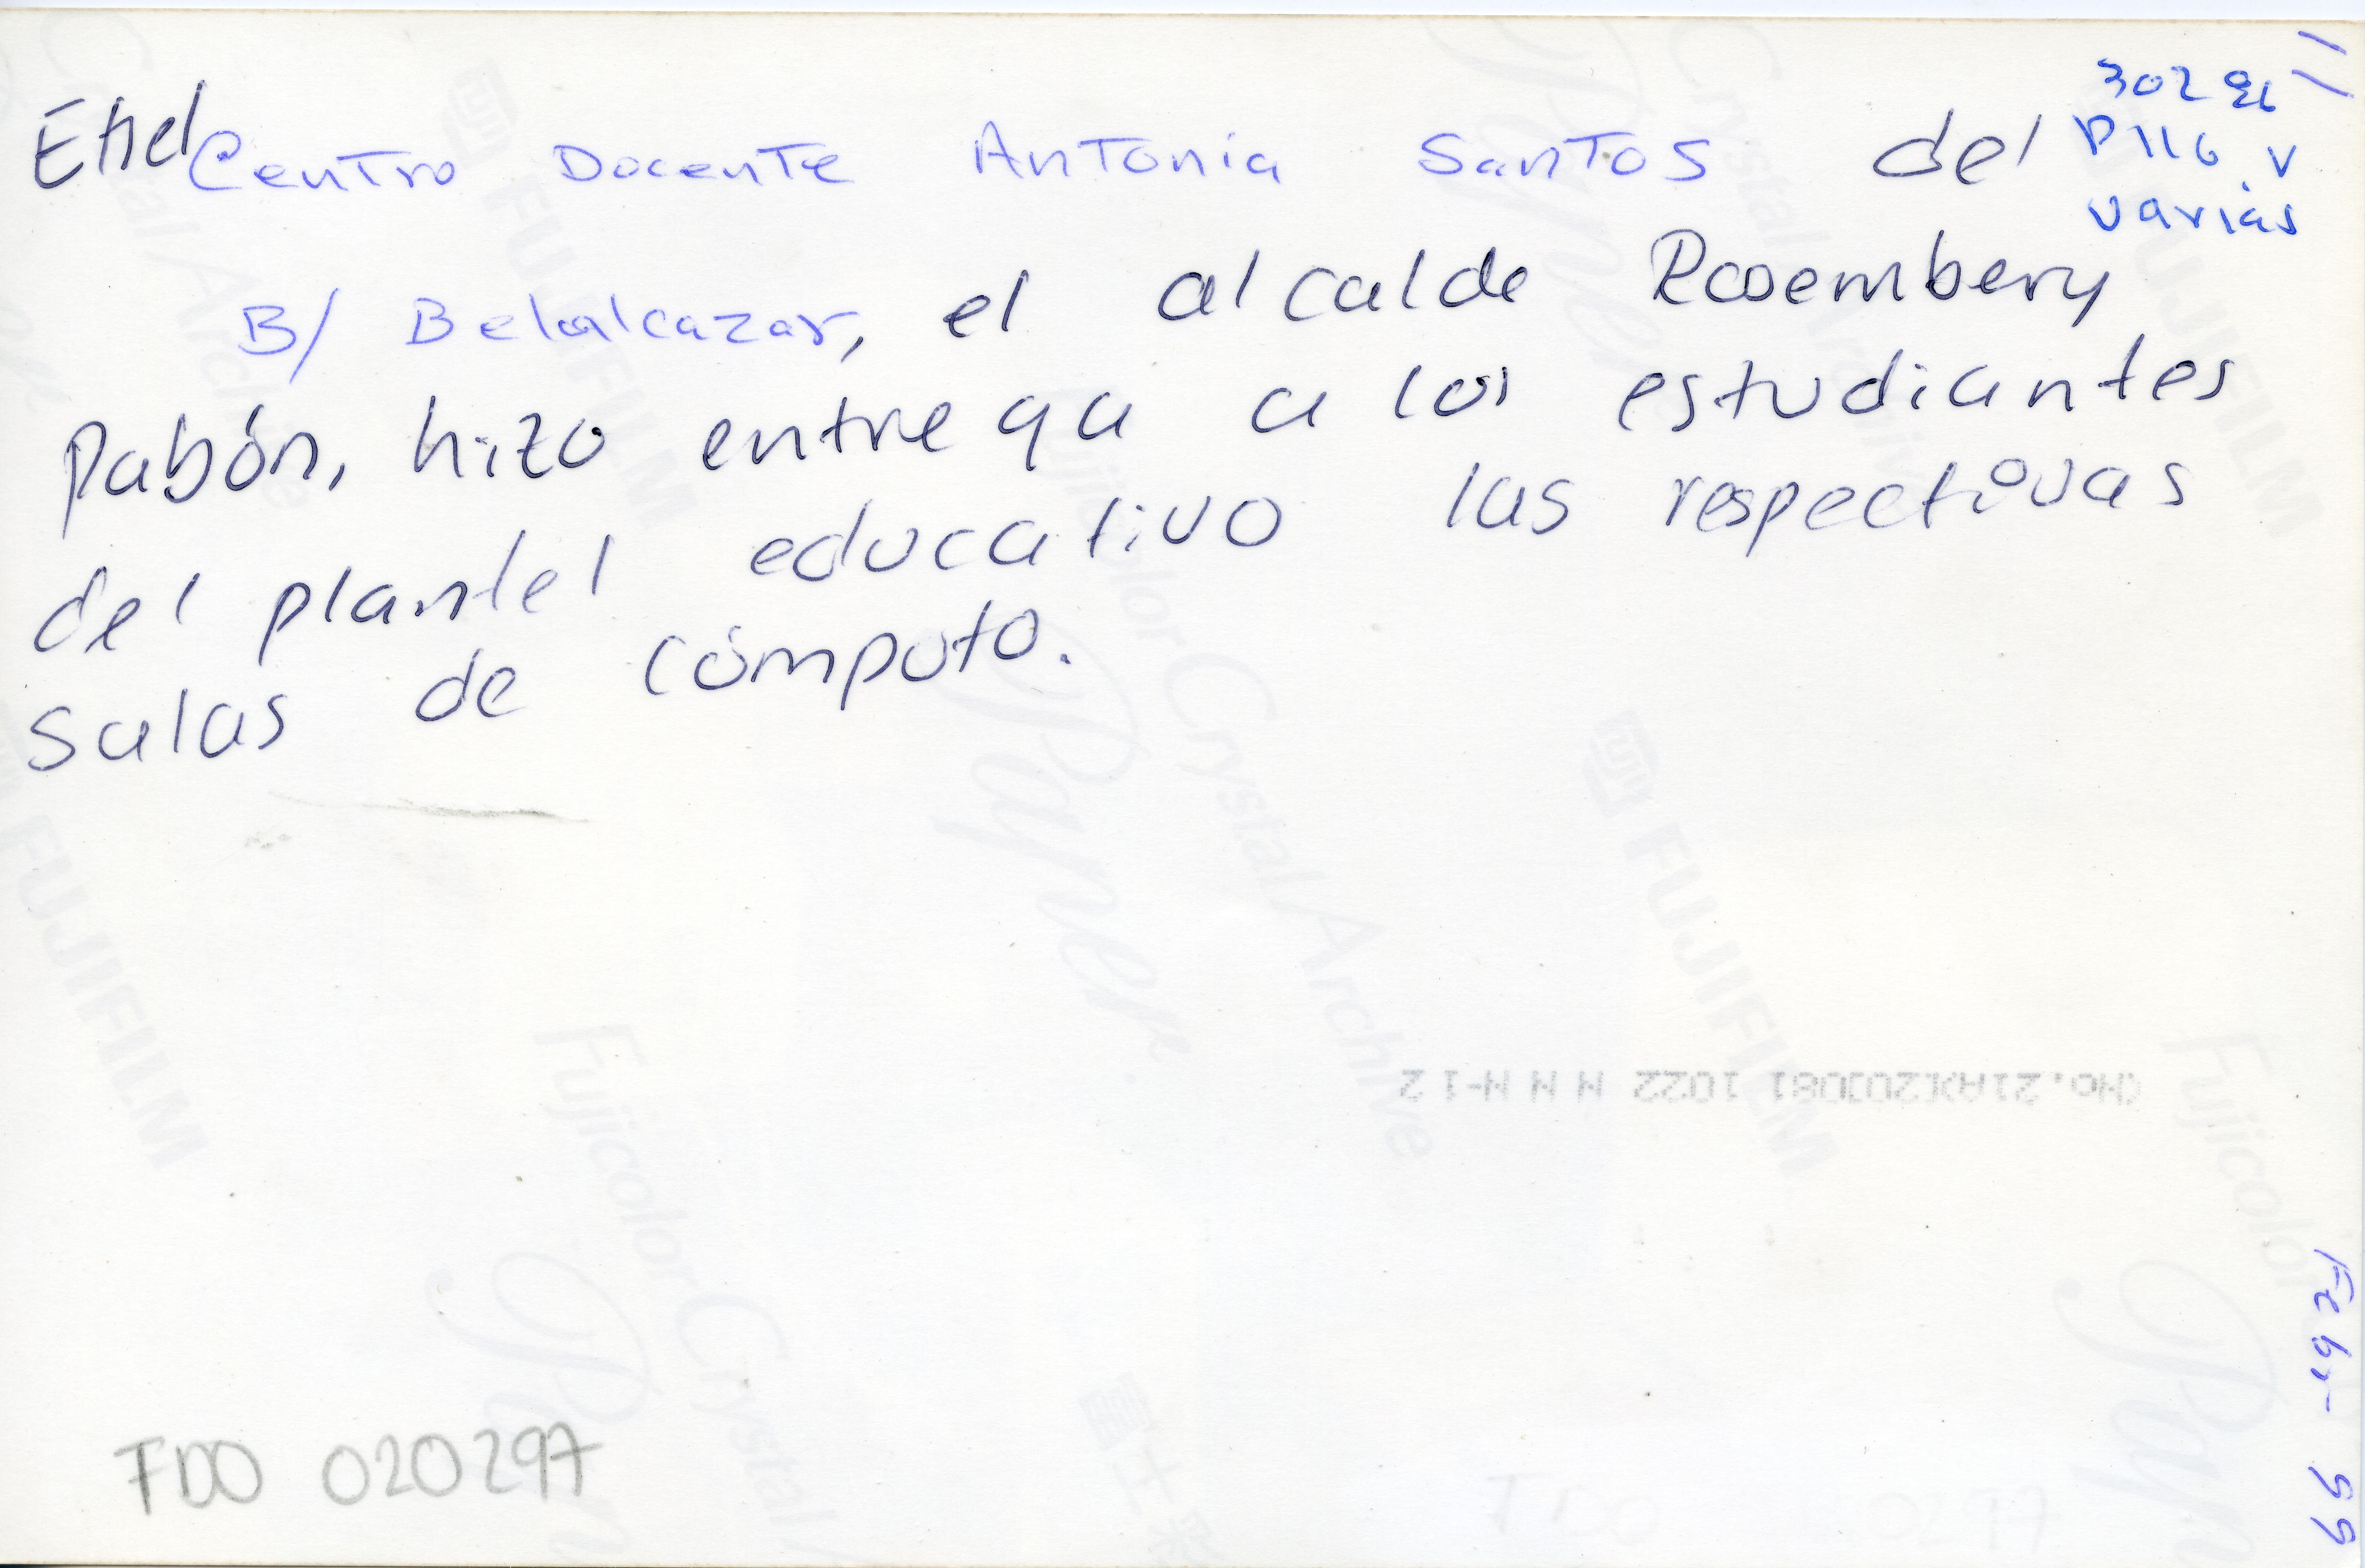 En el Centro Docente Antonia Santos del
B/ Belalcazar, el alcalde Rosembery
Pabón, hizo entrega a los estudiantes
del plantel educativo las respectivas
salas de cómputo.
302
P116 V
varias
(No.21A)(20)081 1022 N N N-1 2
Feb- 99
FDO 020297
FUJIFILM
Fujicolor Crystal Archive
Paper